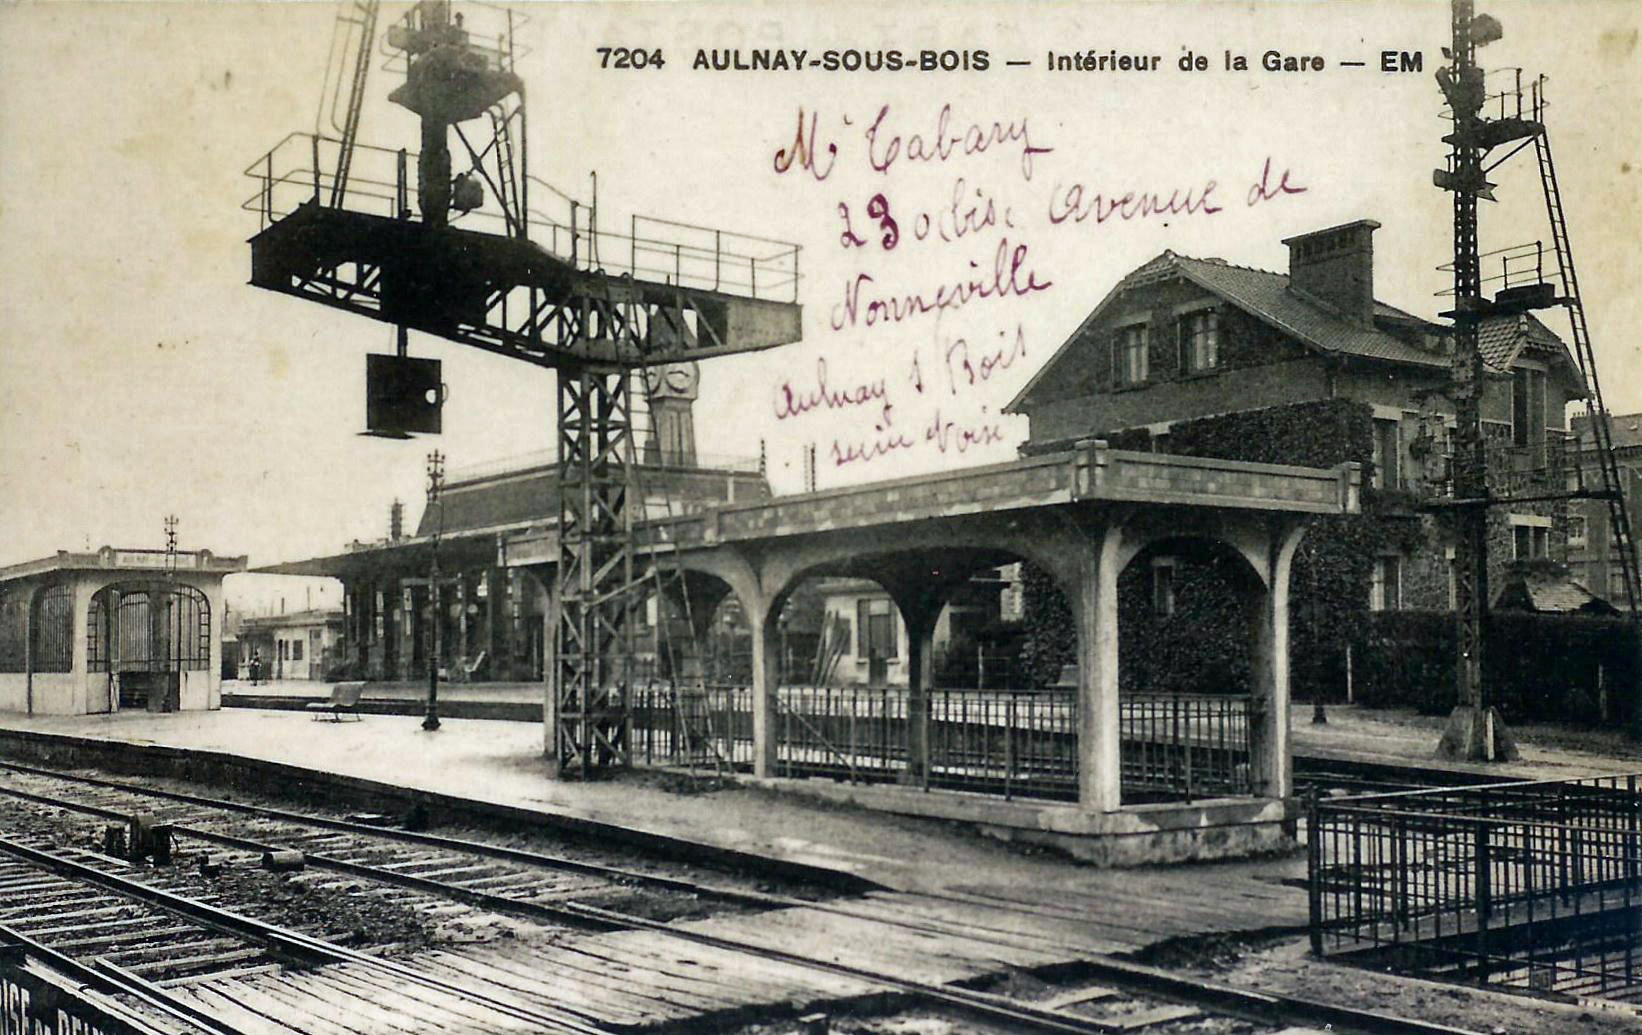 7204 AULNAY-SOUS-BOIS — Intérieur de la Gare — EM
Mr Tabary
23 o(bis. Avenue de
Nonneville
Aulnay s Bois
seine & oise